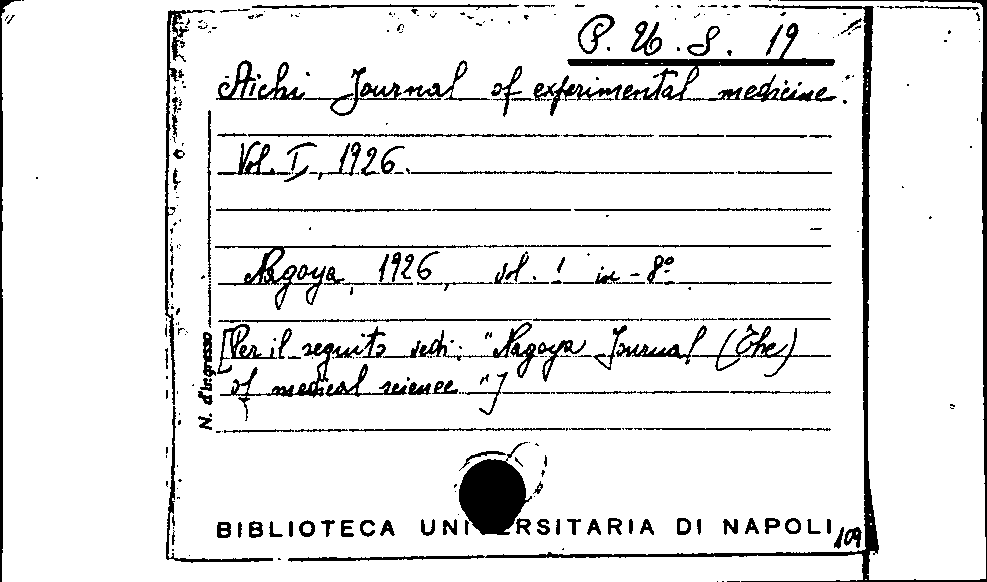 P. U. S. 19
Aichi Journal of experimental medicine.
Vol. I, 1926.
Nagoya, 1926, vol. 1 in-8º
[Per il seguito vedi: "Nagoya Journal (The)
of medical science"]
N. d'Ingresso
BIBLIOTECA UNIVERSITARIA DI NAPOLI
109